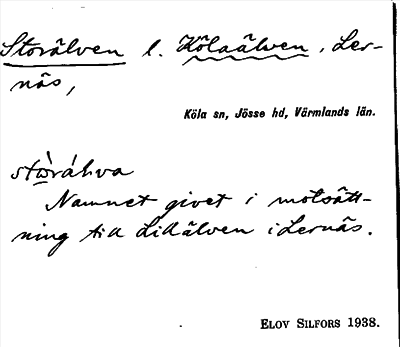 Storälven l. Köla älven, Ler-
näs,
Köla sn, Jösse hd, Värmlands län.
Namnet givet i motsätt-
ning till Lillälven i Lernäs.
ELOV SILFORS 1938.